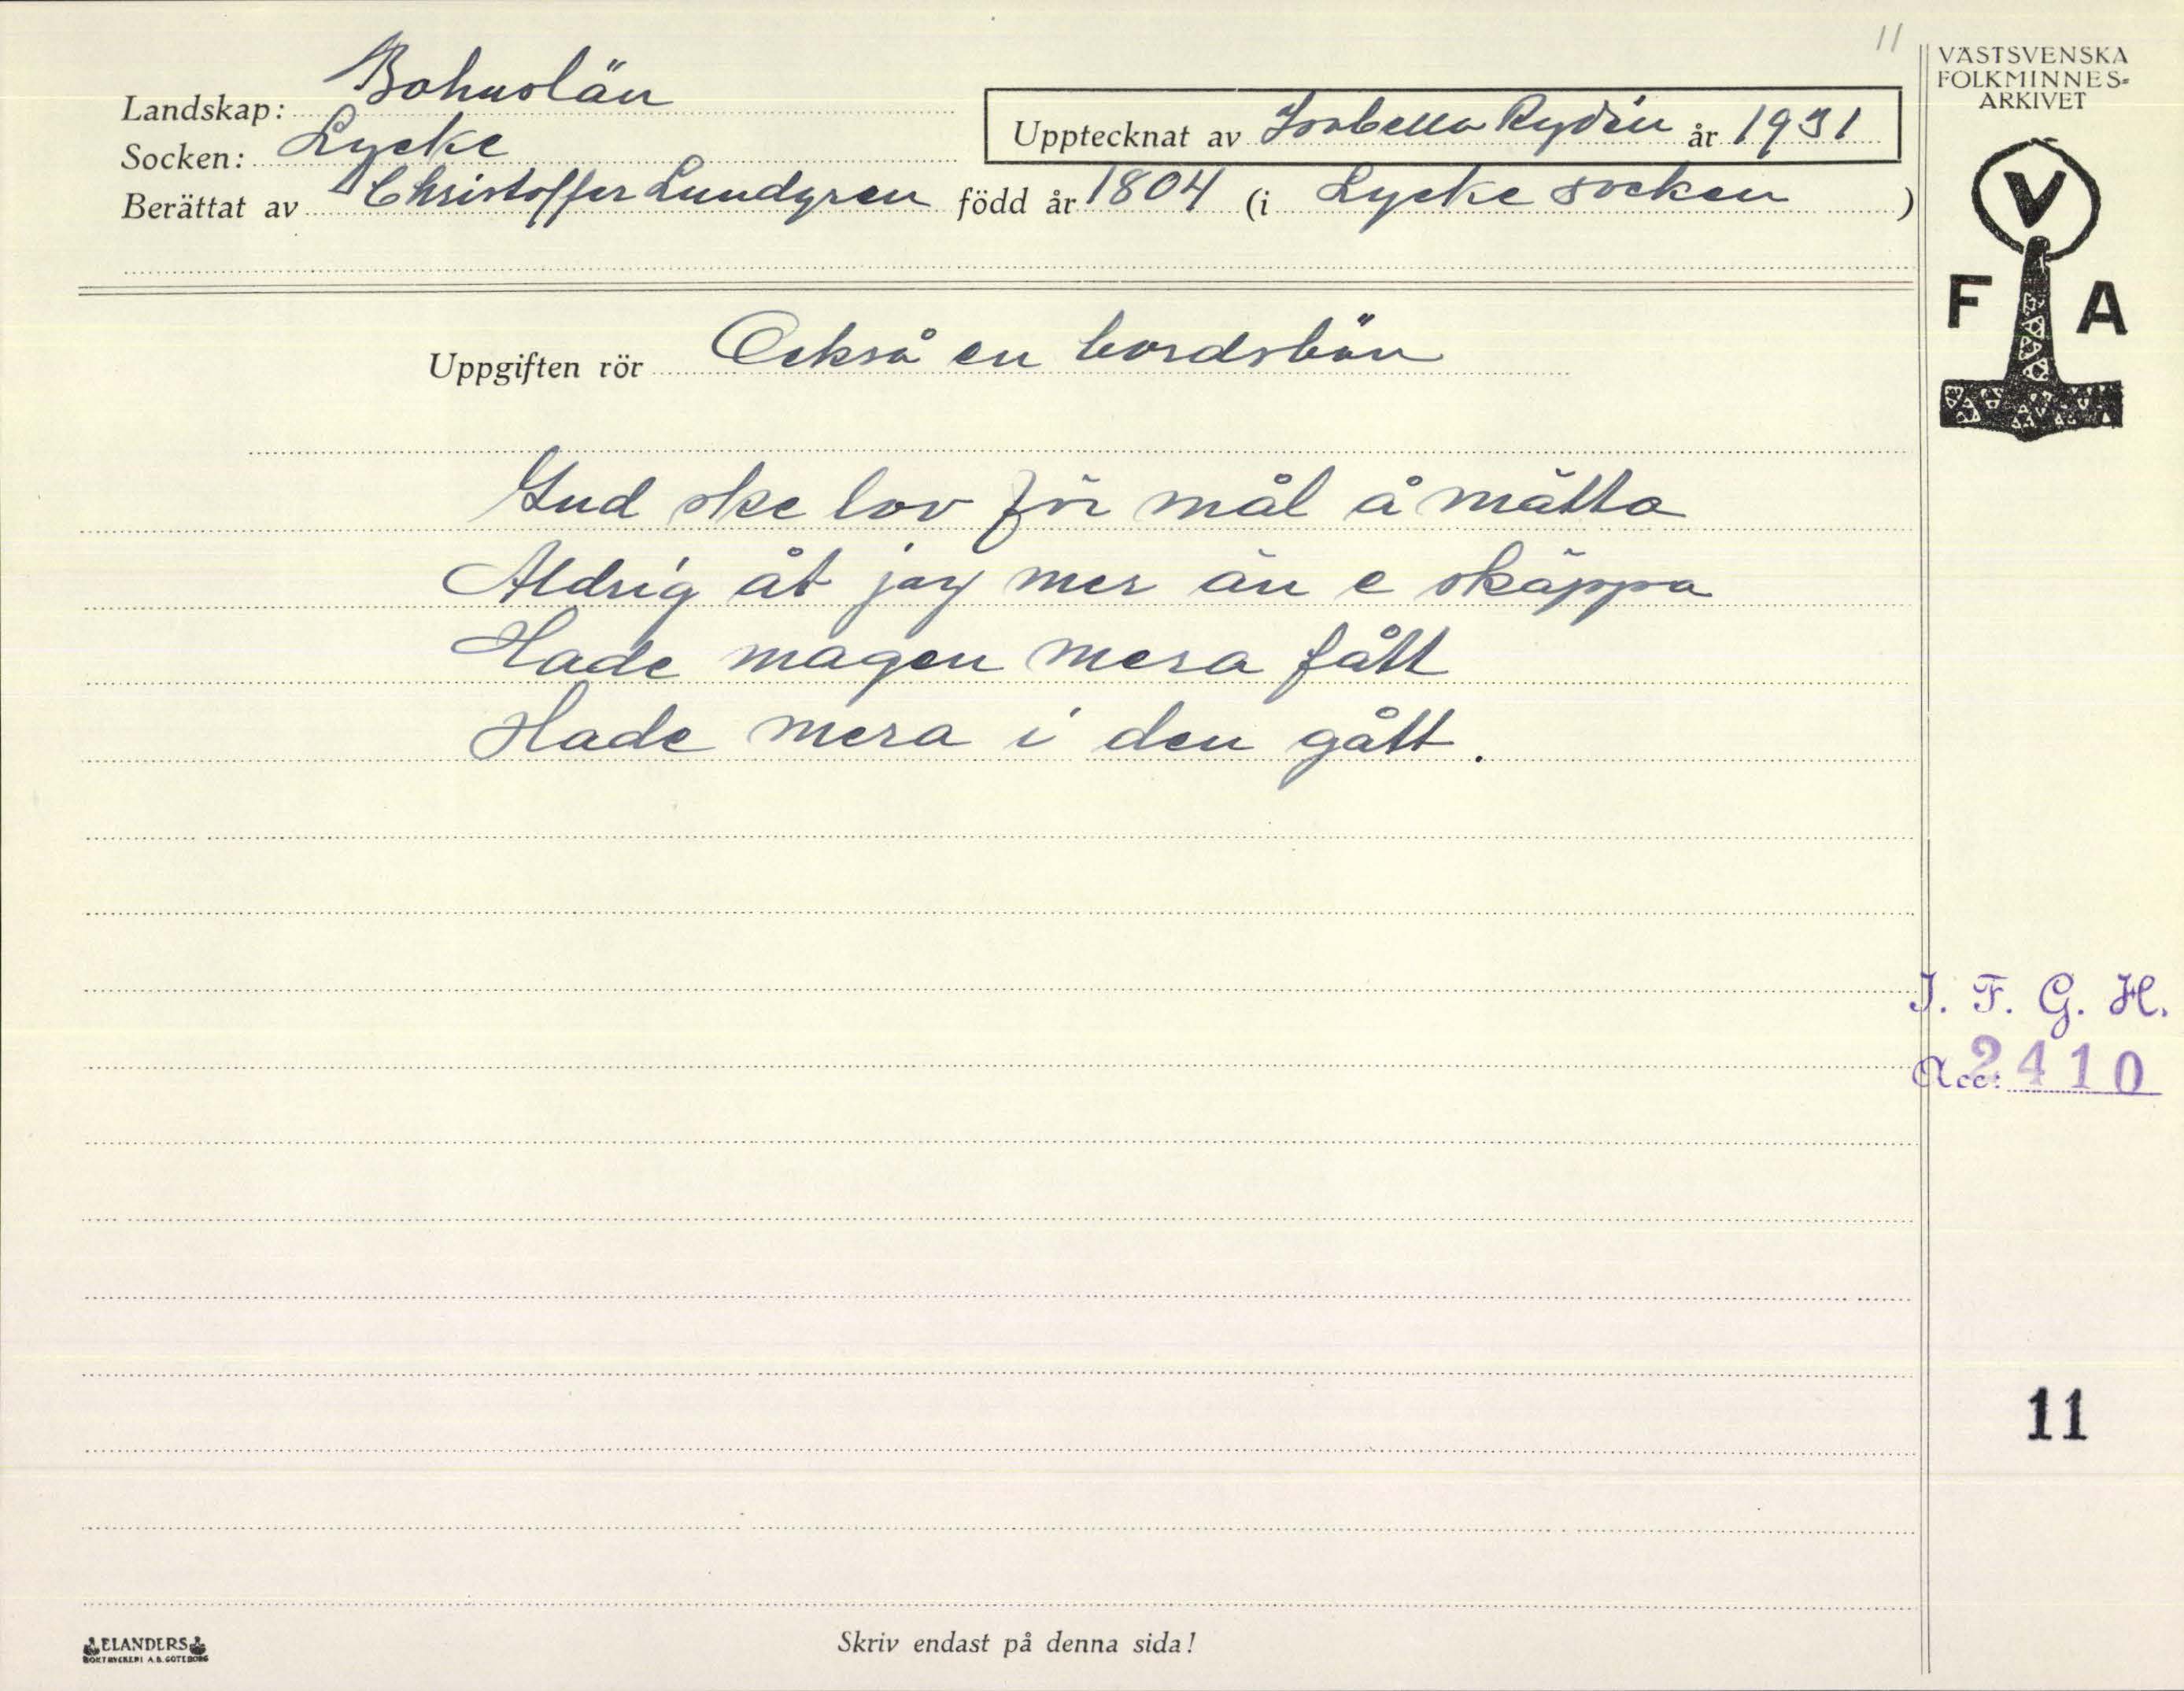 11
VÄSTSVENSKA
FOLKMINNES-
ARKIVET
Landskap: Bohuslän
Upptecknat av Isabella Rydén år 1931
Socken: Lycke
Berättat av Christoffer Lundgren född år 1804 (i Lycke socken)
V
F A
Uppgiften rör Också en bordsbön
Gud ske lov för mål å mätta
Aldrig åt jag mer än e skäppa
Hade magen mera fått
Hade mera i den gått.
I. F. G. H.
Acc: 2410
11
ELANDERS
BOKTRYCKERI A.B. GÖTEBORG
Skriv endast på denna sida!